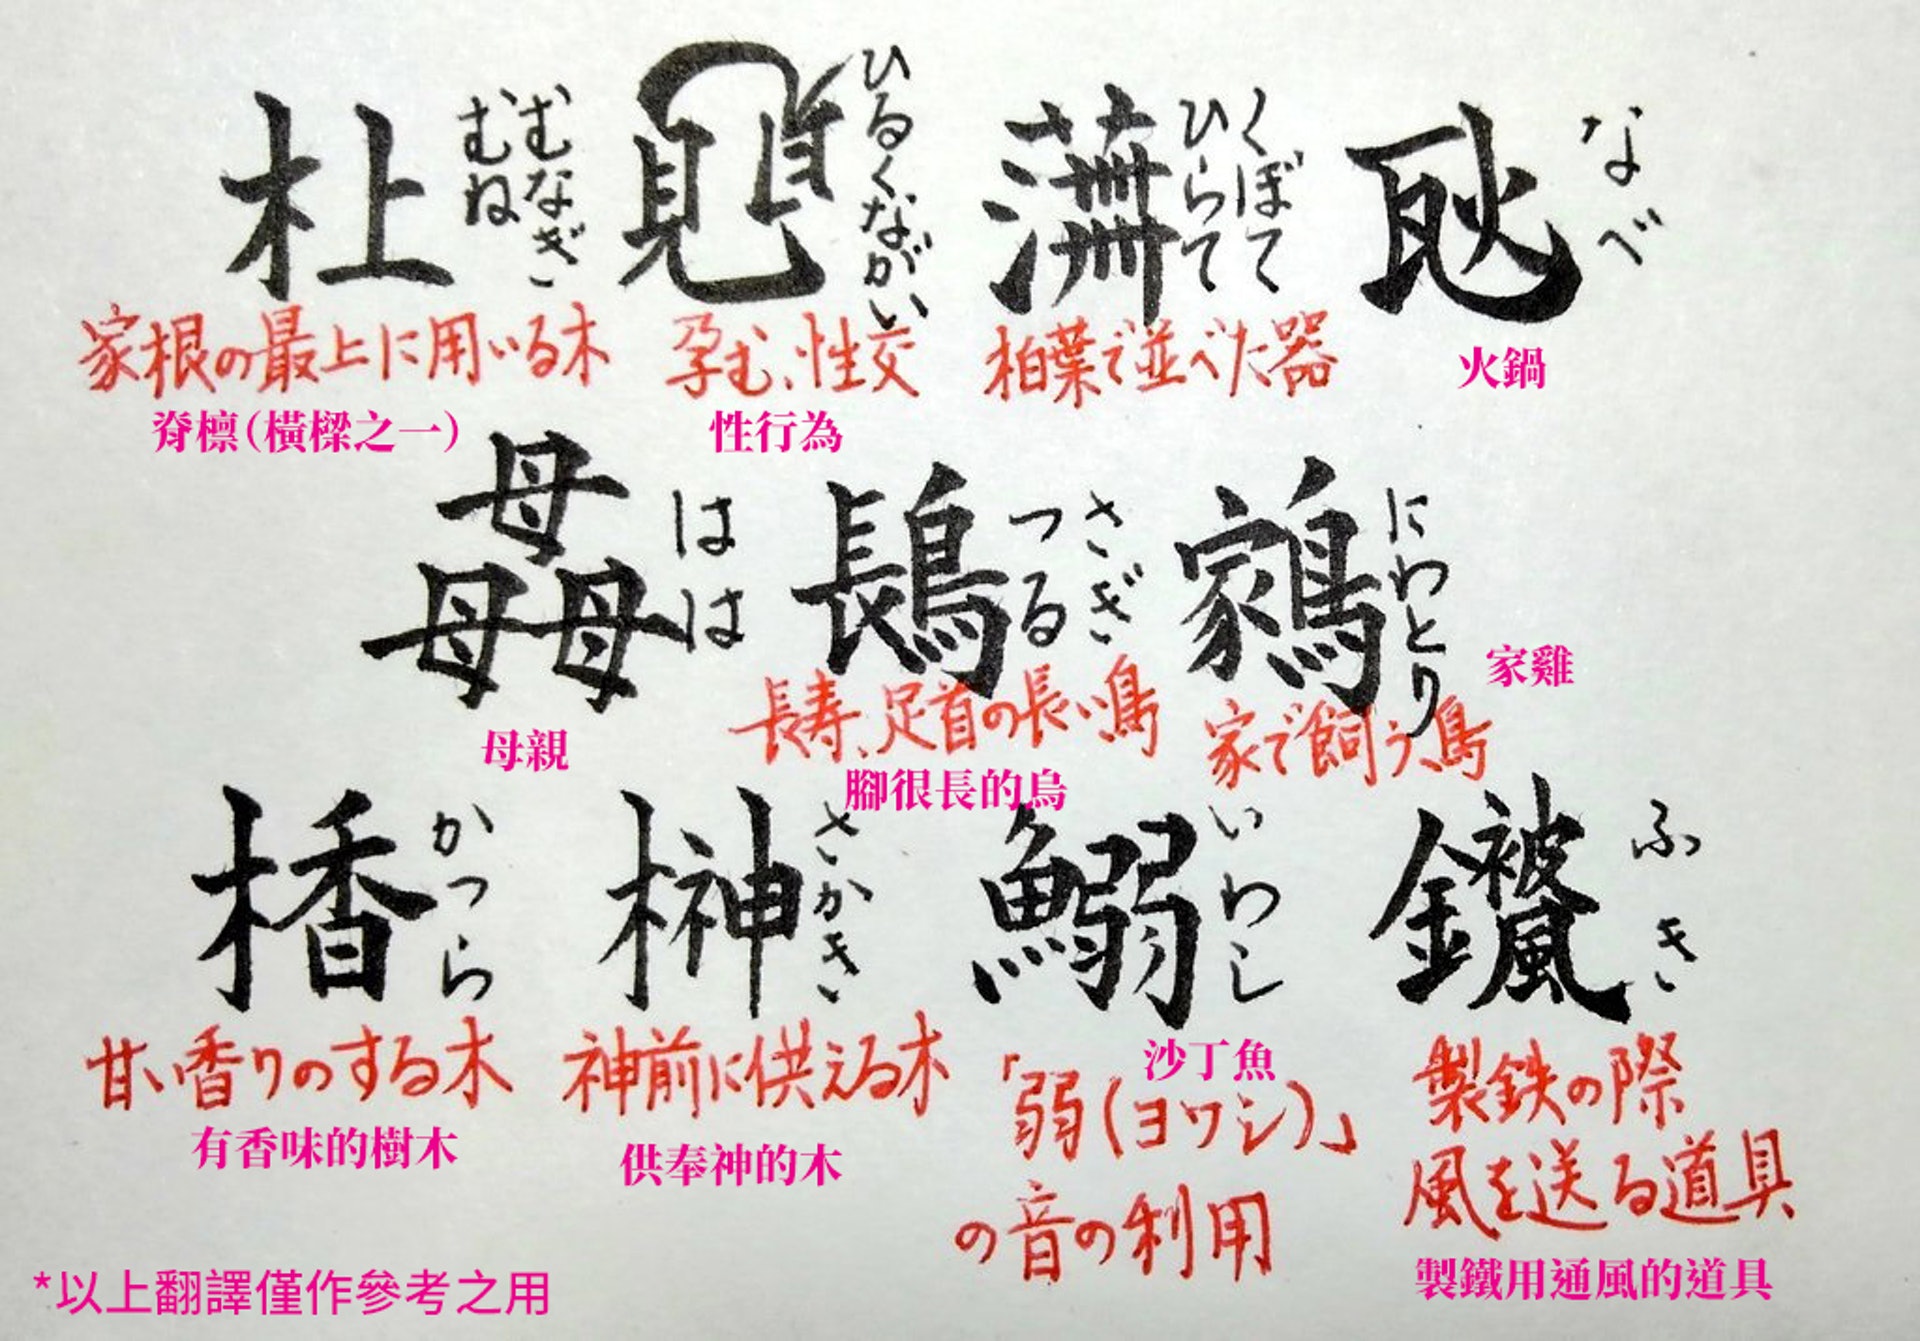 むなぎ
むね
ひるくながい
くぼて
ひらて
なべ
家根の最上に用いる木
孕む、性交
柏葉で並べた器
火鍋
脊檩(橫樑之一)
性行為
母
母母
はは
鵑
さぎ
つる
にわとり
家雞
長寿、足首の長い鳥
家で飼う鳥
母親
腳很長的鳥
かつら
榊
さかき
鰯
いわし
ふき
甘い香りのする木
神前に供える木
沙丁魚
「弱(ヨワシ)」
の音の利用
製鉄の際
風を送る道具
有香味的樹木
供奉神的木
製鐵用通風的道具
*以上翻譯僅作參考之用